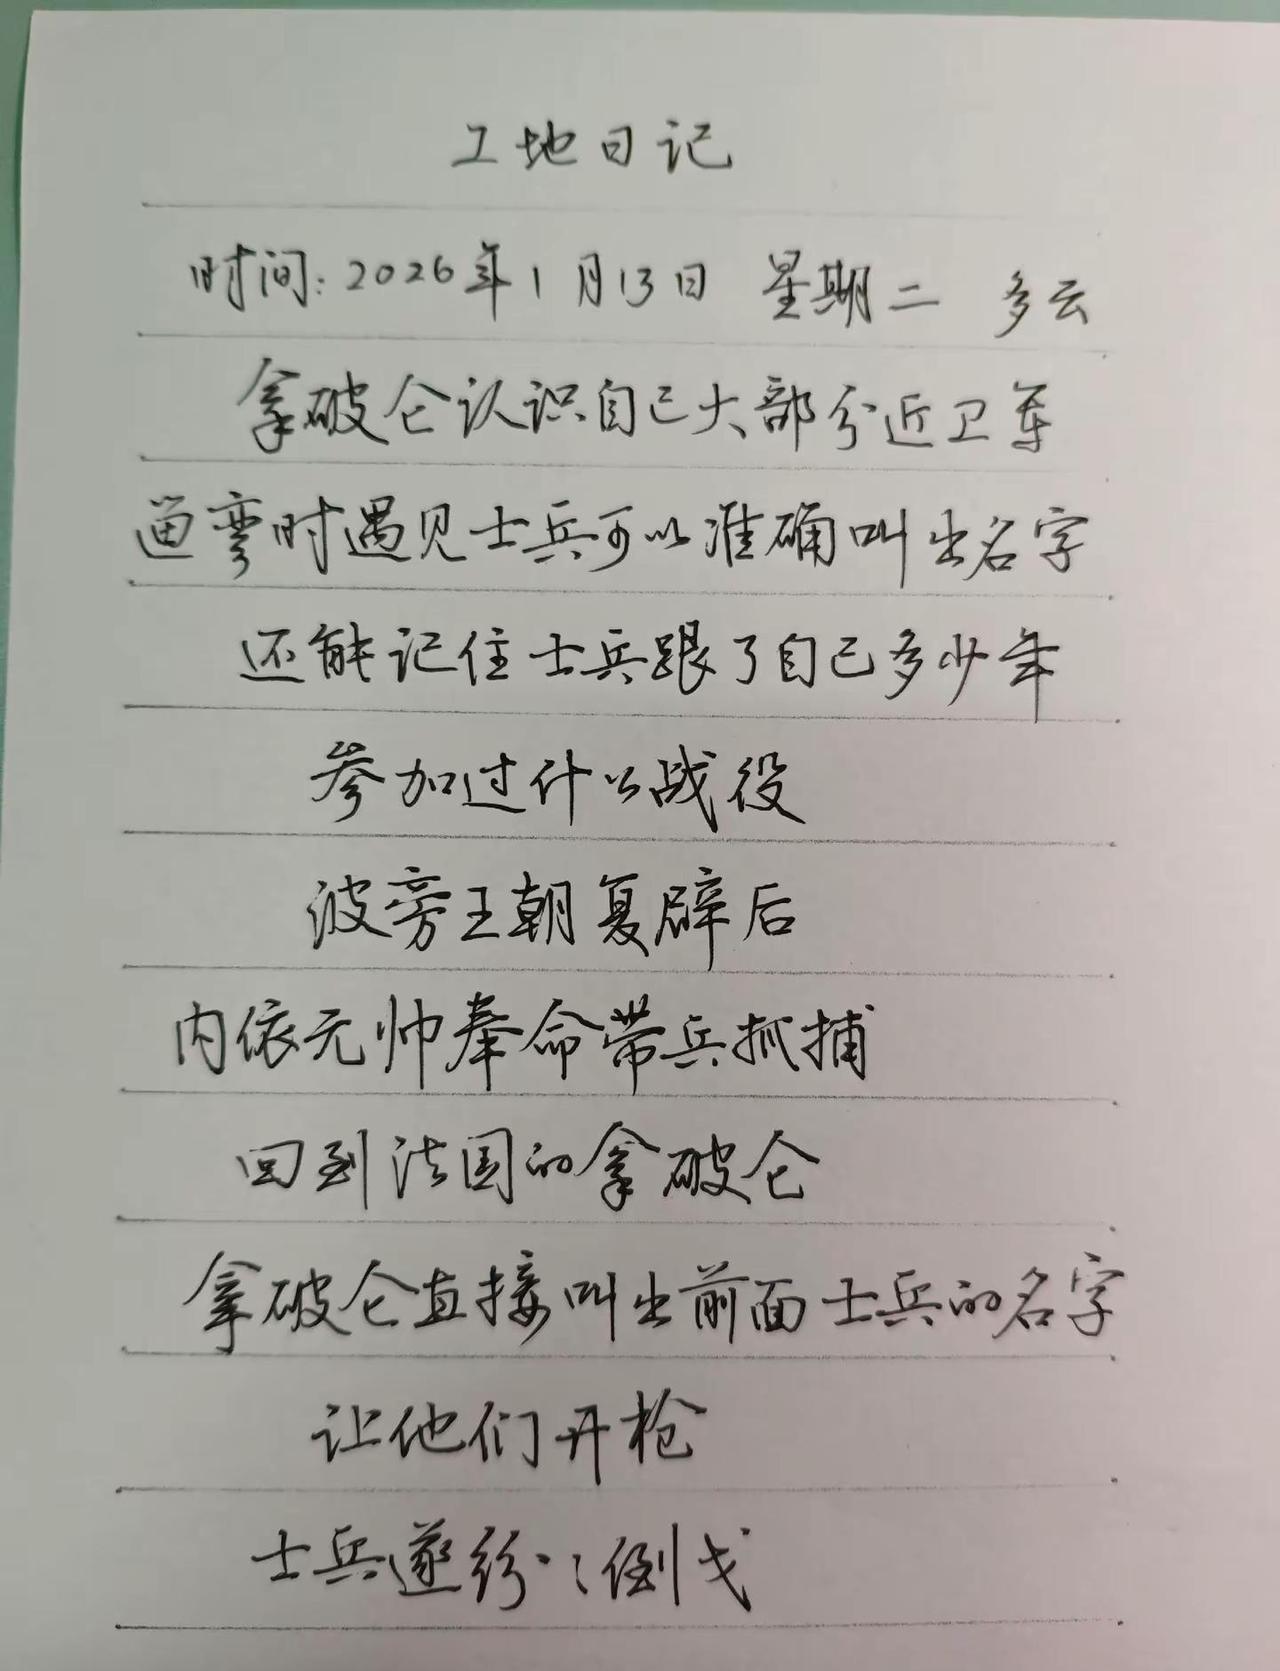 工地日记
时间:2026年1月13日 星期二 多云
拿破仑认识自己大部分近卫军
遛弯时遇见士兵可以准确叫出名字
还能记住士兵跟了自己多少年
参加过什么战役
波旁王朝复辟后
内依元帅奉命带兵抓捕
回到法国的拿破仑
拿破仑直接叫出前面士兵的名字
让他们开枪
士兵遂纷纷倒戈